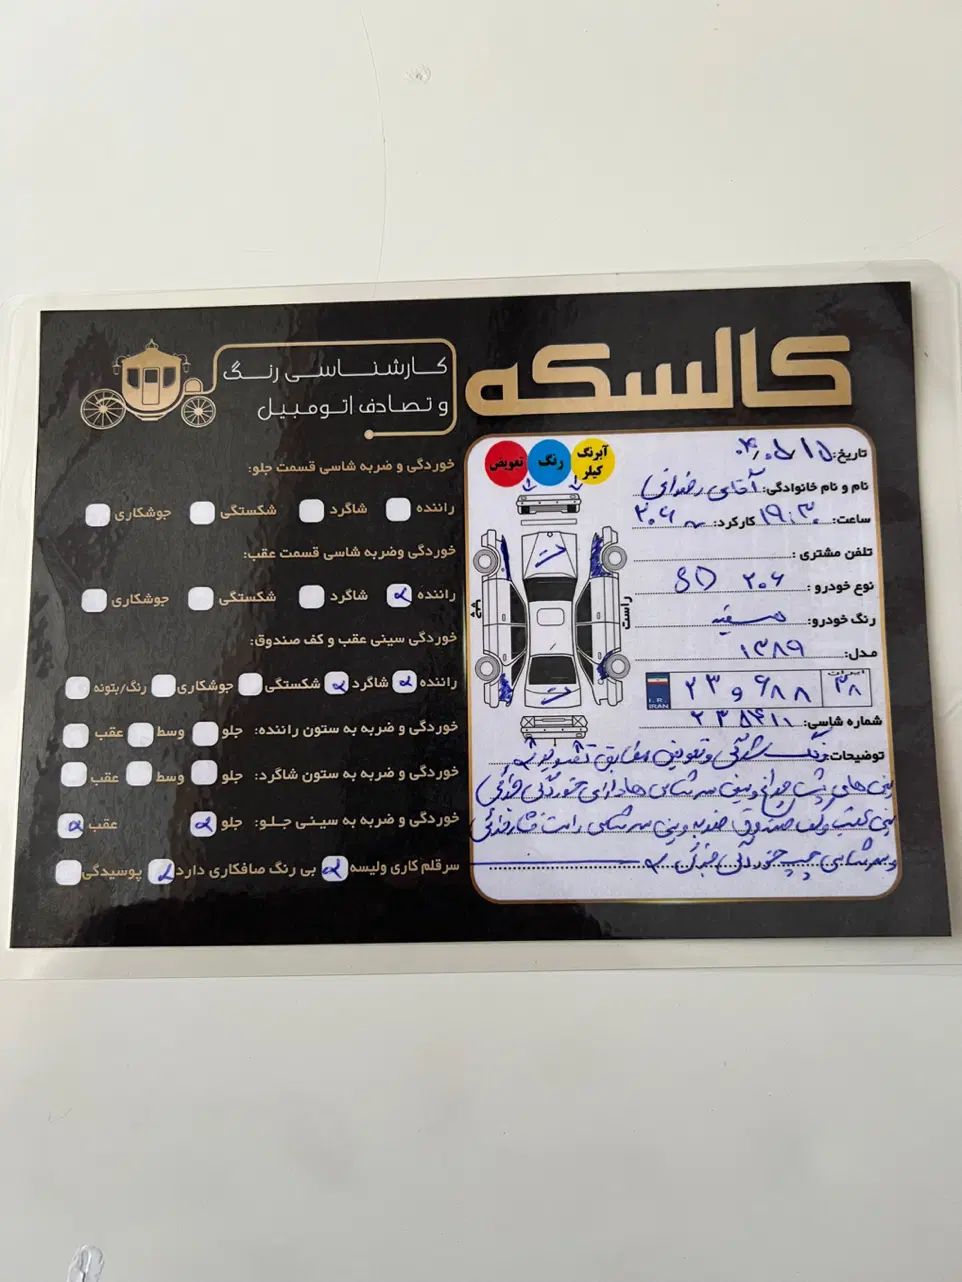 کالسکه
تاریخ: ۰۴/۰۵/۱۵
نام و نام خانوادگی: آقای رضوانی
ساعت: ۱۹:۳۰ کارکرد: ۲۰۶
تلفن مشتری:
نوع خودرو: ۲۰۶ SD
رنگ خودرو: سفید
مدل: ۱۳۸۹
ایران ۳۸ ۶۸۸ و ۲۳ I.R. IRAN
شماره شاسی: ۲۳۵۴۱۱
آبرنگ گیلر
رنگ
تعویض
چپ
راست
توضیحات: رنگ شدگی و تعویض مطابق تصویر
سینی های پشت چراغ و سینی سرشاسی ها دارای خوردگی جزئی
سینی عقب و کف صندوق ضربه و سینی سرشاسی راست فشار جزئی
و سرشاسی چپ خوردگی جزئی
کارشناسی رنگ
و تصادف اتومبیل
خوردگی و ضربه شاسی قسمت جلو:
راننده شاگرد شکستگی جوشکاری
خوردگی وضربه شاسی قسمت عقب:
راننده شاگرد شکستگی جوشکاری
خوردگی سینی عقب و کف صندوق:
راننده شاگرد شکستگی جوشکاری رنگ/بتونه
خوردگی و ضربه به ستون راننده: جلو وسط عقب
خوردگی و ضربه به ستون شاگرد: جلو وسط عقب
خوردگی و ضربه به سینی جلو: جلو عقب
سرقلم کاری ولیسه بی رنگ صافکاری دارد پوسیدگی